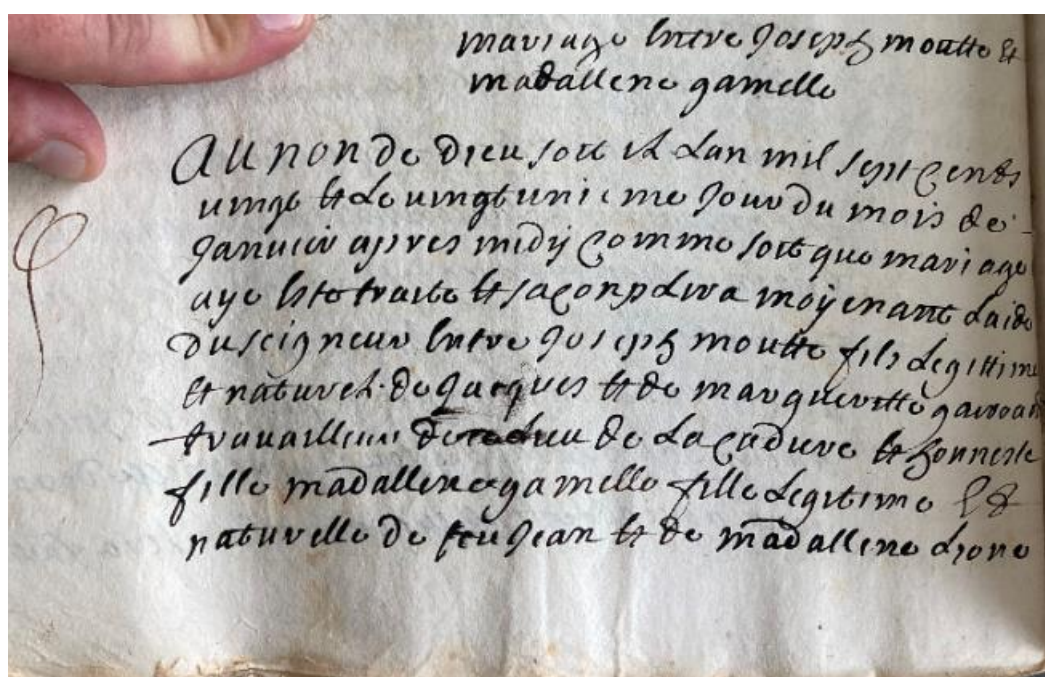 mariage Entre Joseph moutte et
madallene gamelle
Au non de dieu soit et Lan mil sept cents
uingt et Le uingt unieme Jour du mois de
Januier apres midy comme soit que mariage
aye Este traite et saconplira moyenant Laide
du seigneur Entre Joseph moutte fils Legittime
Et naturel de Jacques et de margueritte
trauailleur de La Cadiere et honneste
fille madallene gamelle fille Legitime Et
naturelle de feu Jean et de madallene